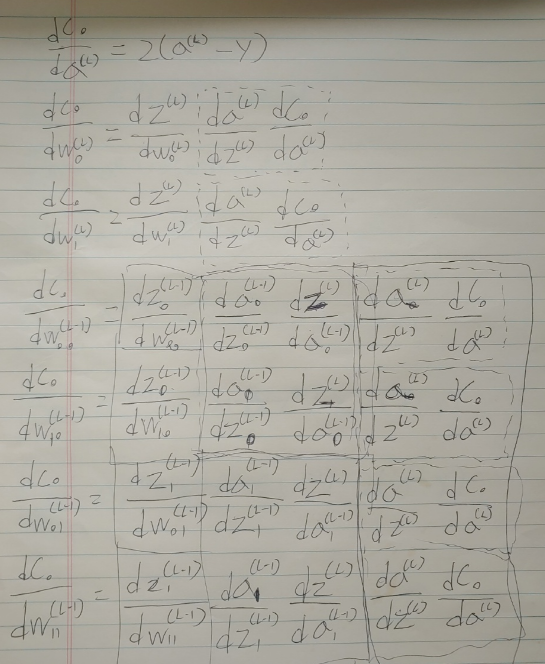 dC₀/da⁽ᴸ⁾ = 2(a⁽ᴸ⁾ − y)
dC₀/dw₀⁽ᴸ⁾ = dz⁽ᴸ⁾/dw₀⁽ᴸ⁾ da⁽ᴸ⁾/dz⁽ᴸ⁾ dC₀/da⁽ᴸ⁾
dC₀/dw₁⁽ᴸ⁾ = dz⁽ᴸ⁾/dw₁⁽ᴸ⁾ da⁽ᴸ⁾/dz⁽ᴸ⁾ dC₀/da⁽ᴸ⁾
dC₀/dw₀₀⁽ᴸ⁻¹⁾ = dz₀⁽ᴸ⁻¹⁾/dw₀₀⁽ᴸ⁻¹⁾ da₀⁽ᴸ⁻¹⁾/dz₀⁽ᴸ⁻¹⁾ dz⁽ᴸ⁾/da₀⁽ᴸ⁻¹⁾ da⁽ᴸ⁾/dz⁽ᴸ⁾ dC₀/da⁽ᴸ⁾
dC₀/dw₁₀⁽ᴸ⁻¹⁾ = dz₀⁽ᴸ⁻¹⁾/dw₁₀⁽ᴸ⁻¹⁾ da₀⁽ᴸ⁻¹⁾/dz₀⁽ᴸ⁻¹⁾ dz⁽ᴸ⁾/da₀⁽ᴸ⁻¹⁾ da⁽ᴸ⁾/dz⁽ᴸ⁾ dC₀/da⁽ᴸ⁾
dC₀/dw₀₁⁽ᴸ⁻¹⁾ = dz₁⁽ᴸ⁻¹⁾/dw₀₁⁽ᴸ⁻¹⁾ da₁⁽ᴸ⁻¹⁾/dz₁⁽ᴸ⁻¹⁾ dz⁽ᴸ⁾/da₁⁽ᴸ⁻¹⁾ da⁽ᴸ⁾/dz⁽ᴸ⁾ dC₀/da⁽ᴸ⁾
dC₀/dw₁₁⁽ᴸ⁻¹⁾ = dz₁⁽ᴸ⁻¹⁾/dw₁₁⁽ᴸ⁻¹⁾ da₁⁽ᴸ⁻¹⁾/dz₁⁽ᴸ⁻¹⁾ dz⁽ᴸ⁾/da₁⁽ᴸ⁻¹⁾ da⁽ᴸ⁾/dz⁽ᴸ⁾ dC₀/da⁽ᴸ⁾